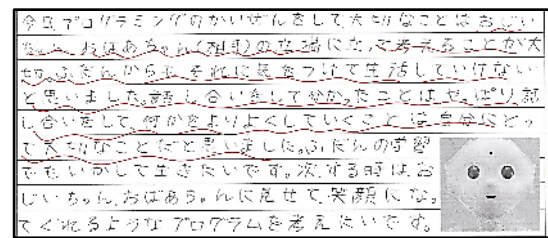 今日プログラミングのかいぜんをして大切なことはおじい
ちゃん、おばあちゃん(相手)の立場になって考えることが大
切。ふだんからもそれに気をつけて生活していけない
と思いました。話し合いをして分かったことはやっぱり話
し合いをして何かをよりよくしていくことは自分にとっ
て大切なことだと思いました。ふだんの学習
でもいかして生きたいです。次、する時は、お
じいちゃん、おばあちゃんに見せて笑顔になっ
てくれるようなプログラムを考えたいです。